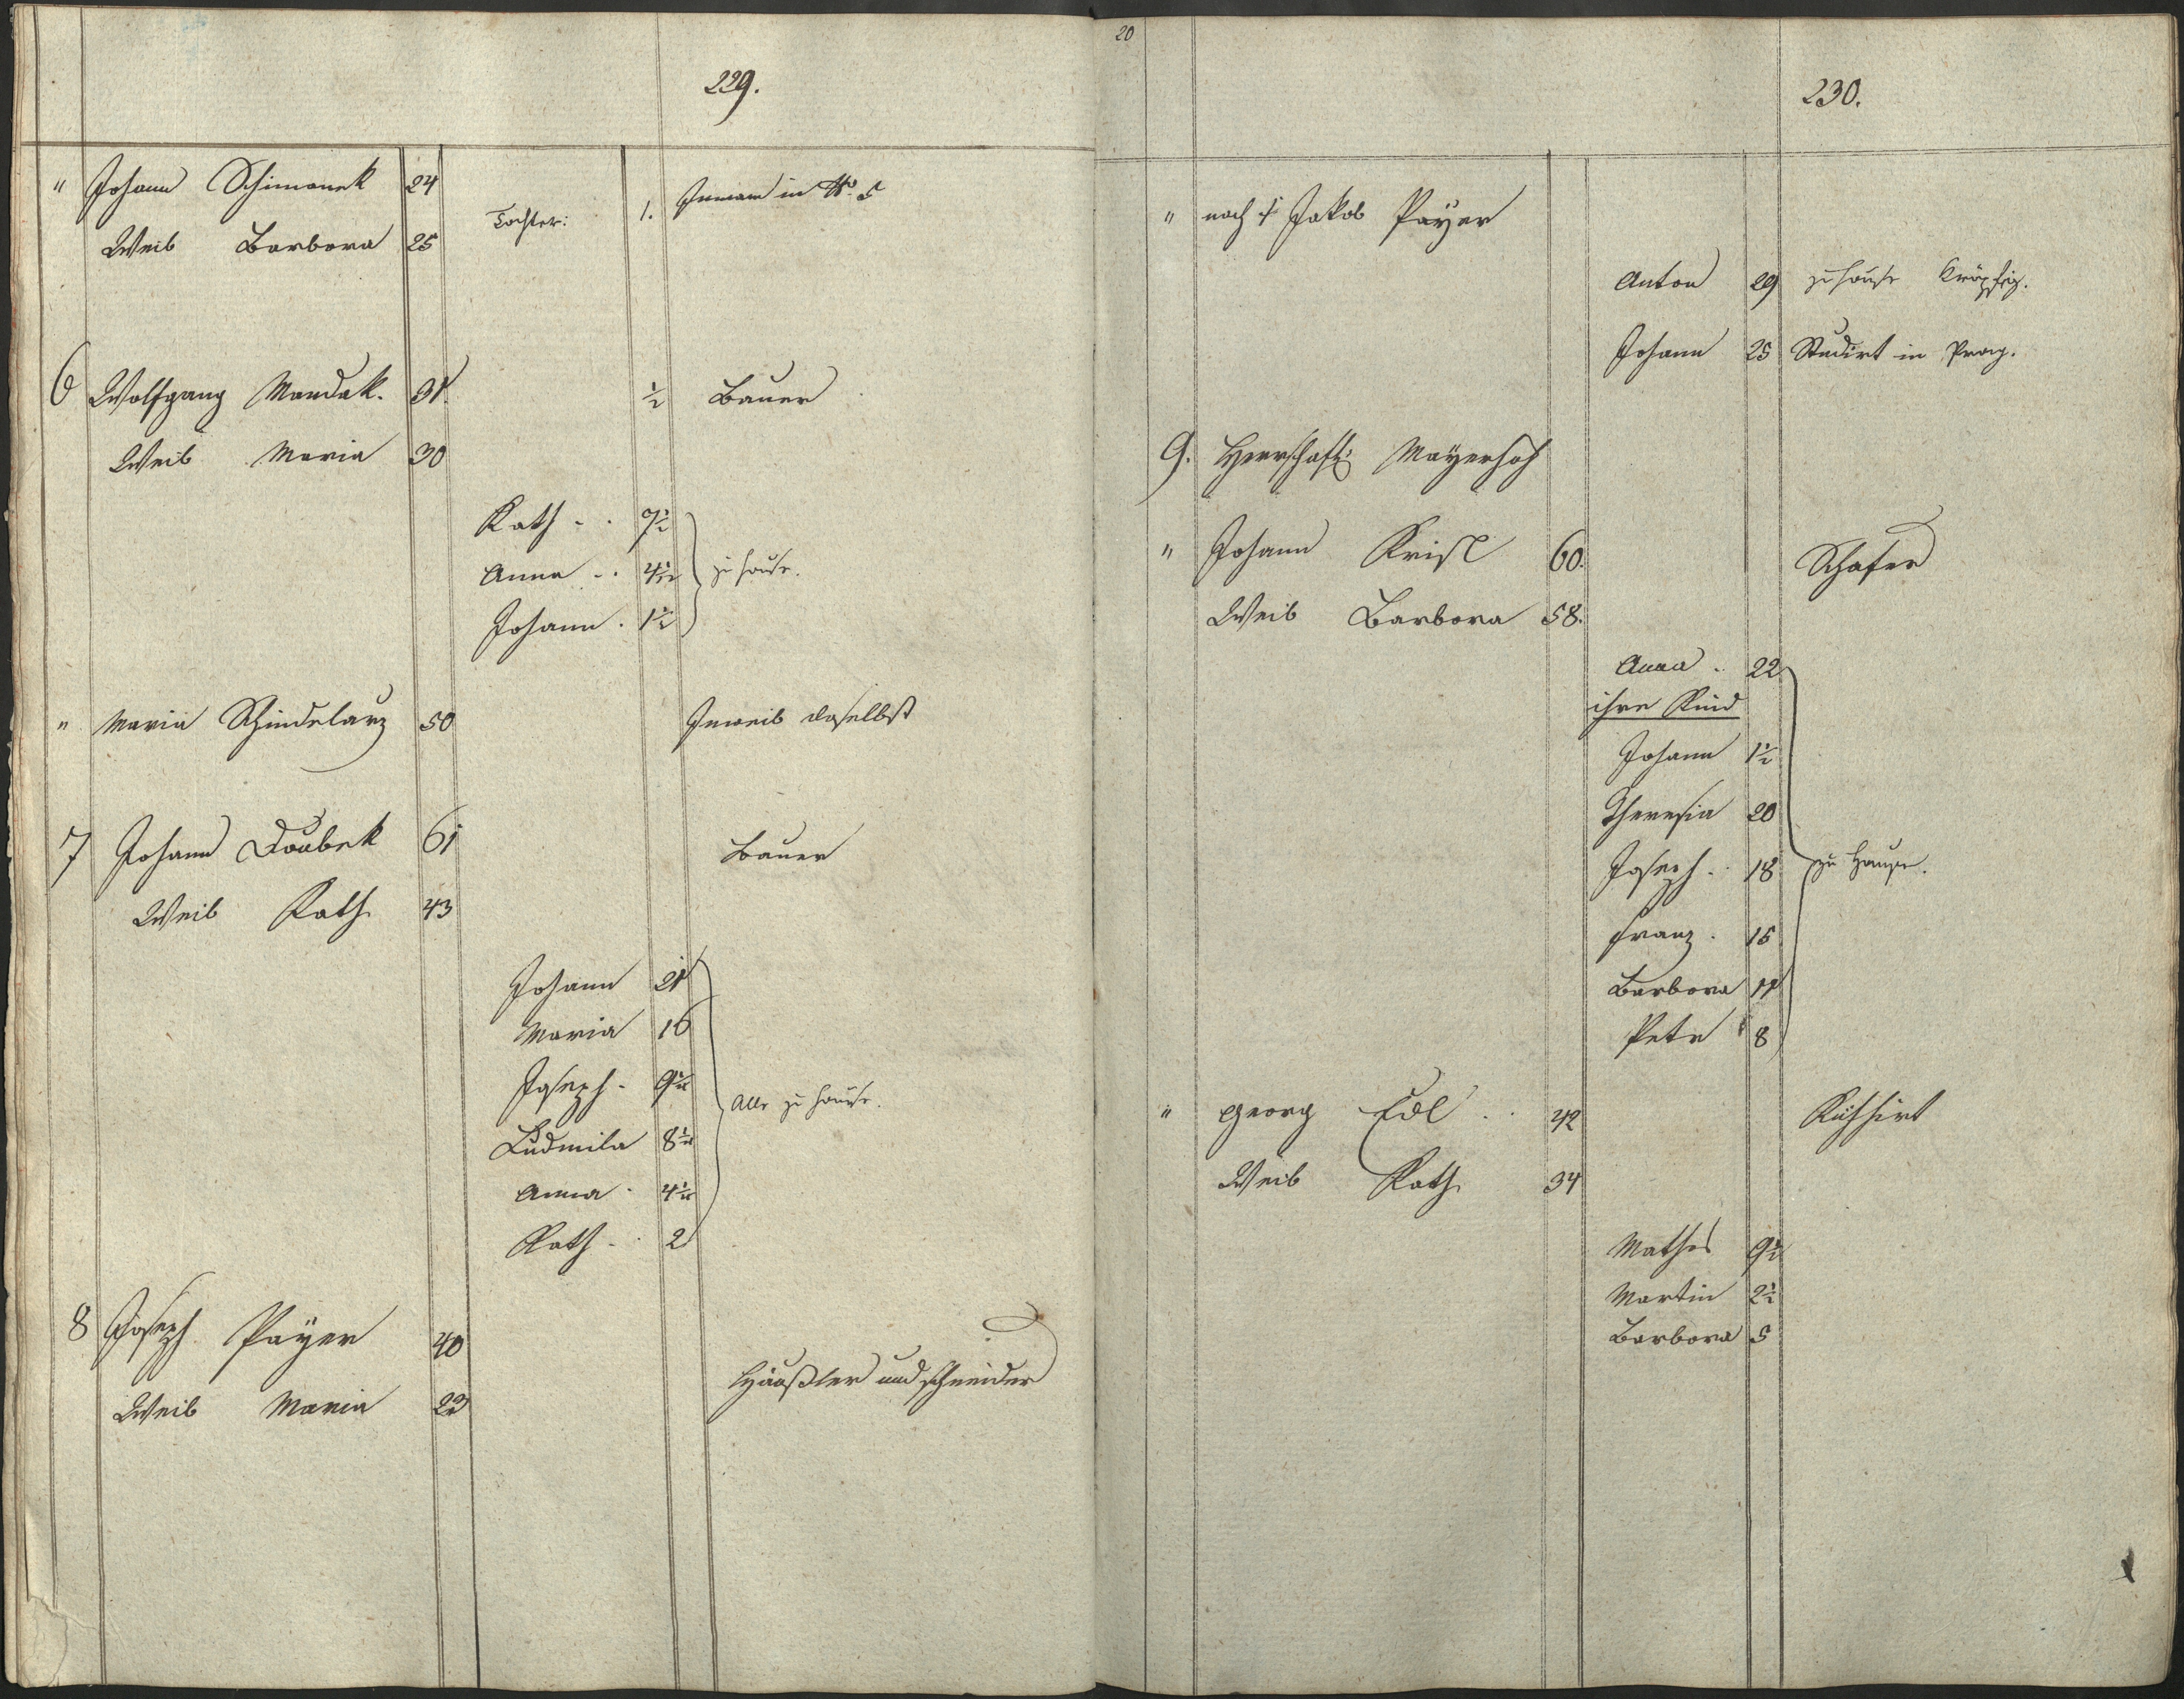 229.
" Johann Schimanek 24 Tochter: 1. Inmann in No. 5
Weib Barbora 25
6 Wolfgang Mandak. 31. ½ Bauer
Weib Maria 30
Kath - . 7½
Anna - . 4½ zu Hause.
Johann . 1½
" Maria Schindelarz 50 Inweib daselbst
7 Johann Doubek 61 Bauer
Weib Kath 43
Johann 21
Maria 16
Joseph - 9½
alle zu Hause.
Ludmila 8½
Anna - 4½
Kath - . 2
8 Joseph Payer 40
Häußler und Schneider
Weib Maria 23
20
230.
" nach † Jakob Payer
Anton 29 zu Hause kröpfig.
Johann 25 Studirt in Prag.
9. Herrschaftl: Mayerhof
" Johann Krist 60. Schafer
Weib Barbora 58.
Anna . 22
ihre Kind
Johann 1½
Theresia 20
Joseph . . 18 zu Hause.
Franz . 15
Barbora 11
Peter 8
" Georg Edl . . 42 Kühhirt
Weib Kath 34
Mathes 9½
Martin 2½
Barbora 5